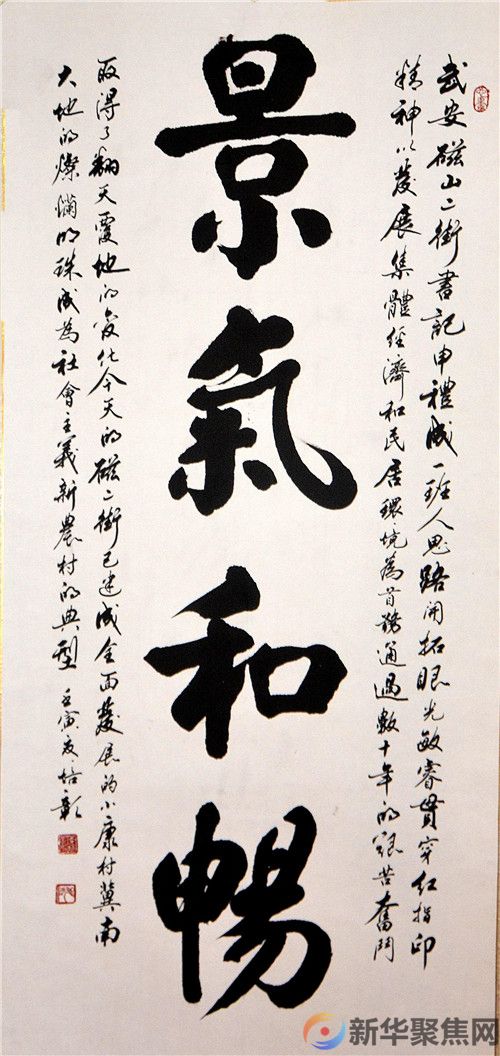 武安磁山二街書記申禮成一班人思路開拓眼光敏睿貫穿紅指印
精神以發展集體經濟和民居環境為首務通過數十年的艱苦奮鬥
景氣和暢
取得了翻天覆地的變化今天的磁二街已建成全面發展的小康村冀南
大地的燦爛明珠成為社會主義新農村的典型 壬寅夏培彰
新华聚焦网